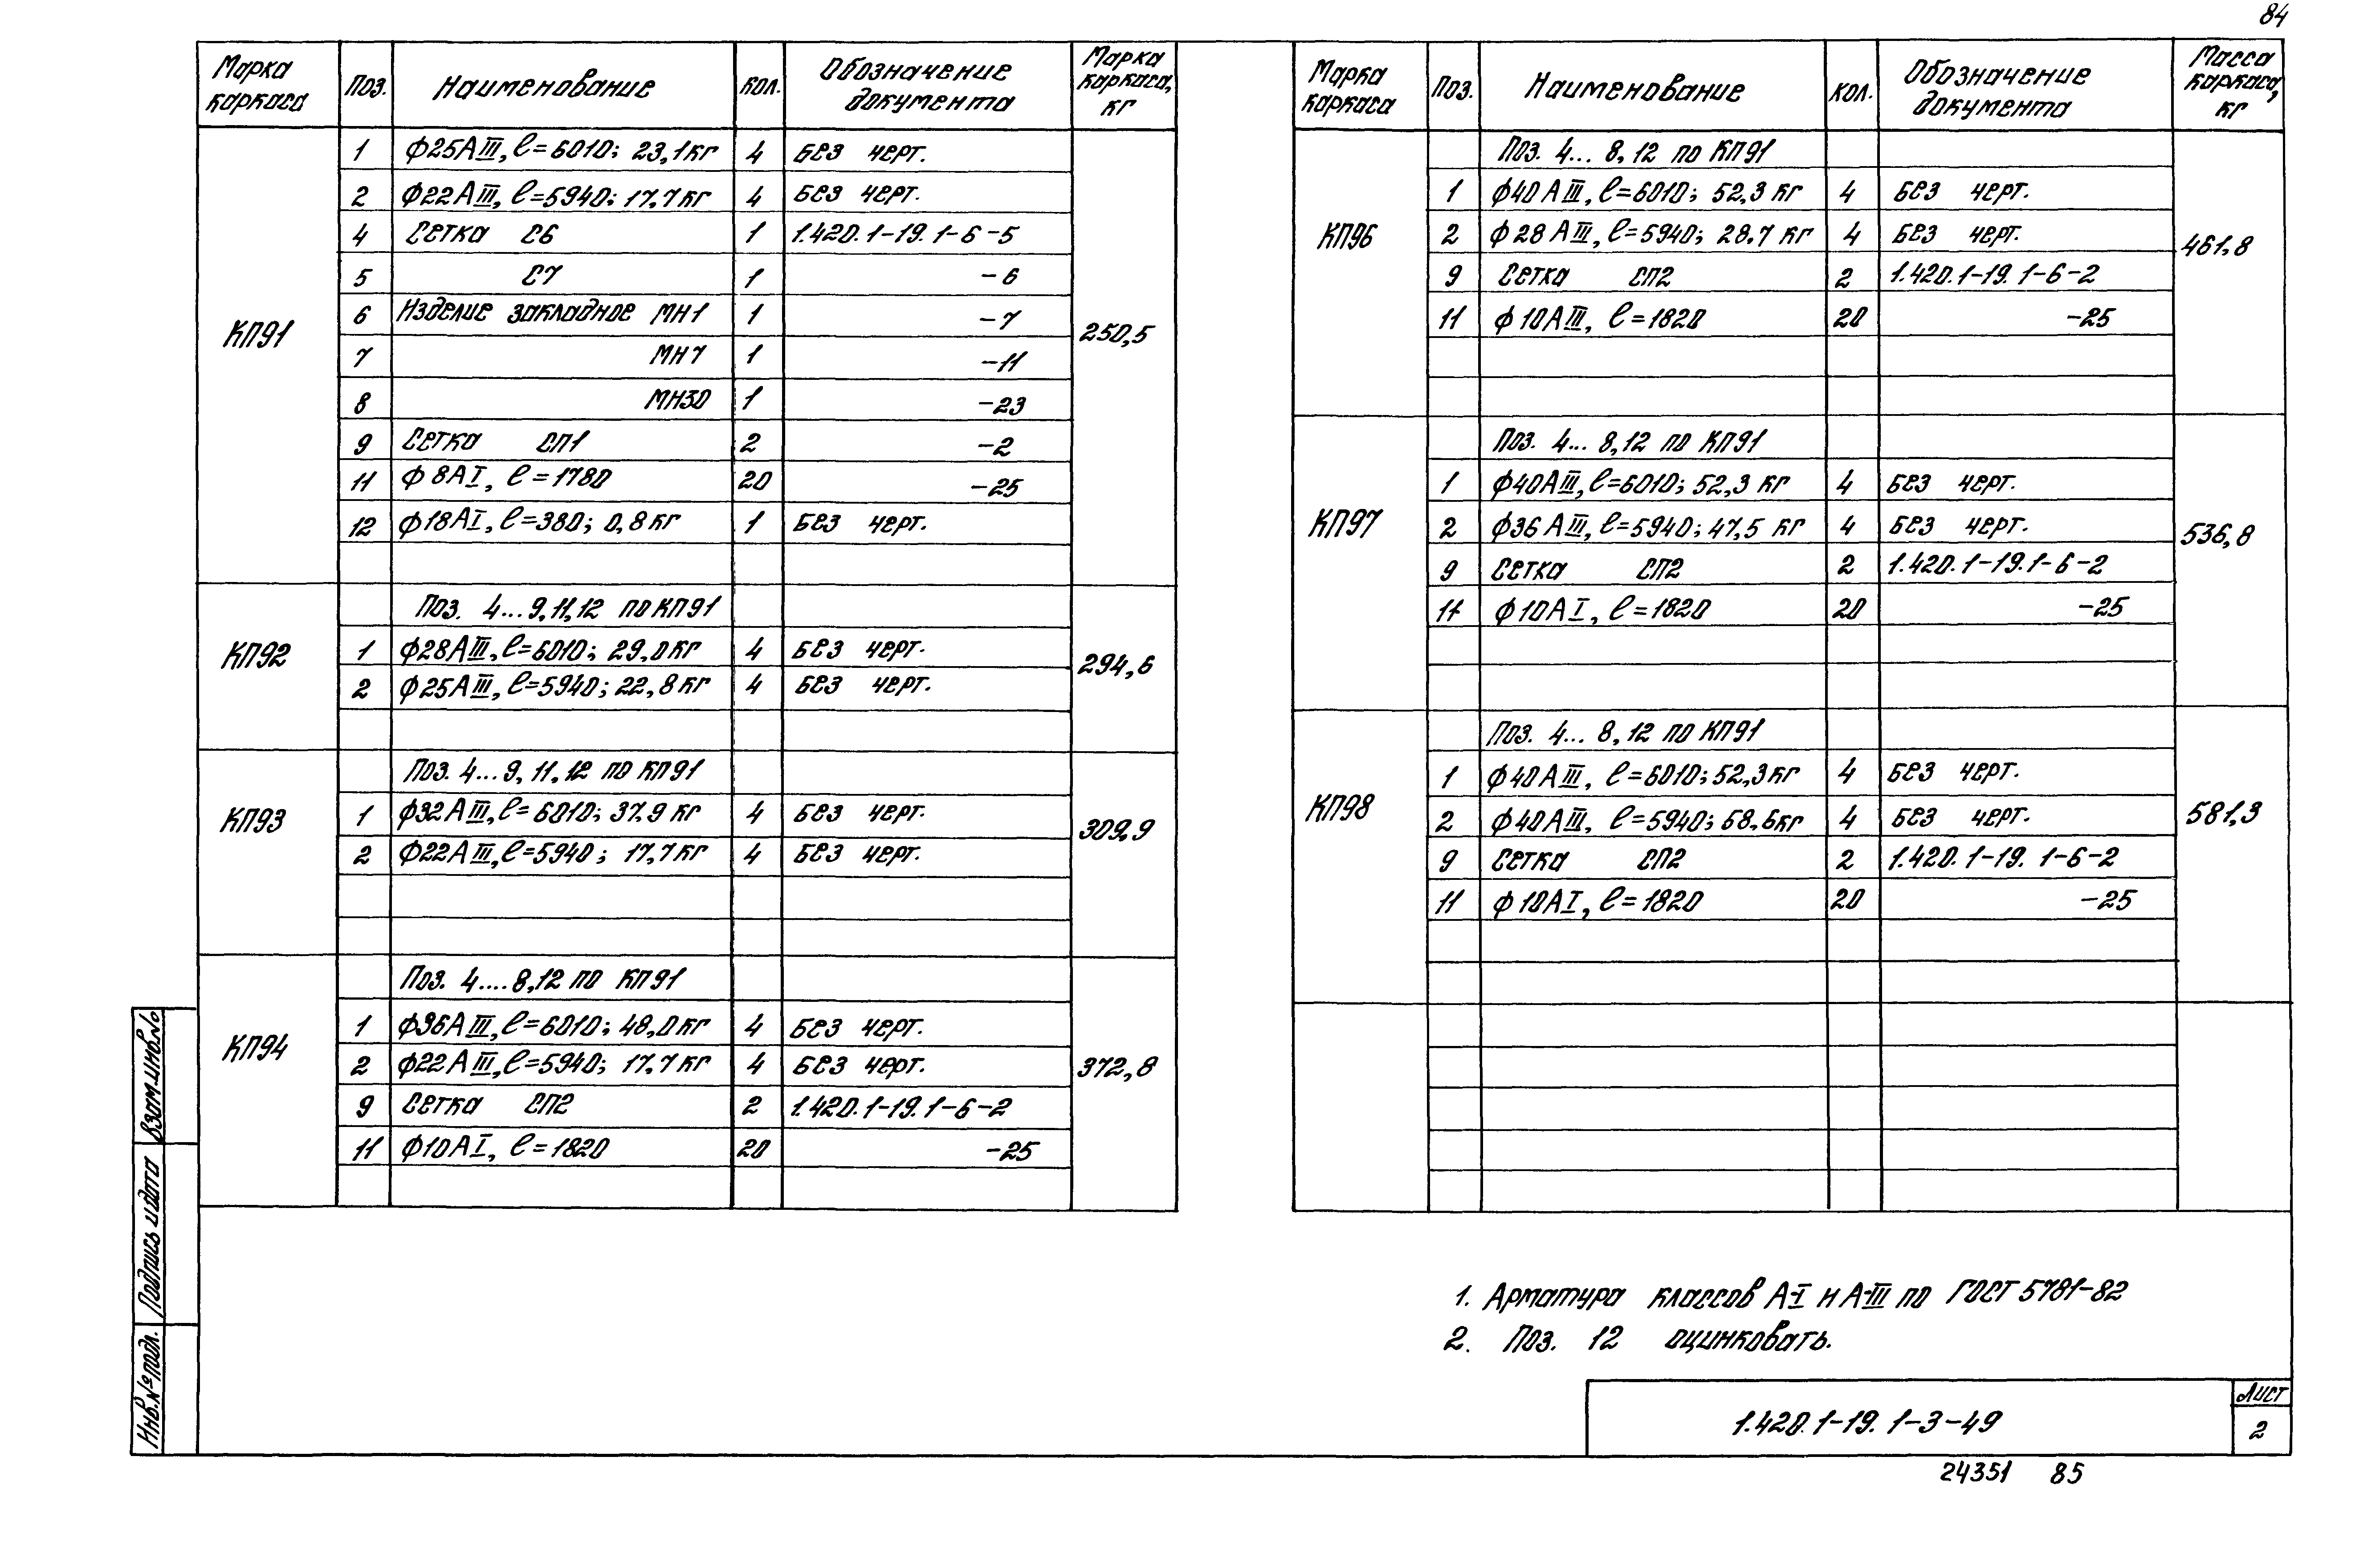 84
Марка каркаса | Поз. | Наименование | Кол. | Обозначение документа | Марка каркаса, кг
КП91 | 250,5
1 | ф25АIII, ℓ=6010; 23,1кг | 4 | Без черт.
2 | ф22АIII, ℓ=5940; 17,7кг | 4 | Без черт.
4 | Сетка С6 | 1 | 1.420.1-19.1-6-5
5 | С7 | 1 | -6
6 | Изделие закладное МН1 | 1 | -7
7 | МН7 | 1 | -11
8 | МН30 | 1 | -23
9 | Сетка СП1 | 2 | -2
11 | ф8АI, ℓ=1780 | 20 | -25
12 | ф18АI, ℓ=380; 0,8кг | 1 | Без черт.
КП92 | 294,6
Поз. 4...9,11,12 по КП91
1 | ф28АIII, ℓ=6010; 29,0кг | 4 | Без черт.
2 | ф25АIII, ℓ=5940; 22,8кг | 4 | Без черт.
КП93 | 309,9
Поз. 4...9, 11, 12 по КП91
1 | ф32АIII, ℓ=6010; 37.9 кг | 4 | Без черт.
2 | ф22АIII, ℓ=5940; 17,7кг | 4 | Без черт.
КП94 | 372,8
Поз. 4....8,12 по КП91
1 | ф36АIII, ℓ=6010; 48,0кг | 4 | Без черт.
2 | ф22АIII, ℓ=5940; 17,7кг | 4 | Без черт.
9 | Сетка СП2 | 2 | 1.420.1-19.1-6-2
11 | ф10АI, ℓ=1820 | 20 | -25
Марка каркаса | Поз. | Наименование | Кол. | Обозначение документа | Масса каркаса, кг
КП96 | 461,8
Поз. 4... 8,12 по КП91
1 | ф40АIII, ℓ=6010; 52,3 кг | 4 | Без черт.
2 | ф28АIII, ℓ=5940; 28,7 кг | 4 | Без черт.
9 | Сетка СП2 | 2 | 1.420.1-19.1-6-2
11 | ф10АIII, ℓ=1820 | 20 | -25
КП97 | 536,8
Поз. 4... 8,12 по КП91
1 | ф40АIII, ℓ=6010; 52,3 кг | 4 | Без черт.
2 | ф36АIII, ℓ=5940; 47,5 кг | 4 | Без черт.
9 | Сетка СП2 | 2 | 1.420.1-19.1-6-2
11 | ф10АI, ℓ=1820 | 20 | -25
КП98 | 581,3
Поз. 4... 8,12 по КП91
1 | ф40АIII, ℓ=6010; 52,3кг | 4 | Без черт.
2 | ф40АIII, ℓ=5940; 58.6кг | 4 | Без черт.
9 | Сетка СП2 | 2 | 1.420.1-19.1-6-2
11 | ф10АI, ℓ=1820 | 20 | -25
1. Арматура классов А-I и А-III по ГОСТ 5781-82
2. Поз. 12 оцинковать.
Взам.инв.№
Подпись и дата
Инв.№ подл.
1.420.1-19.1-3-49
Лист
2
24351 85